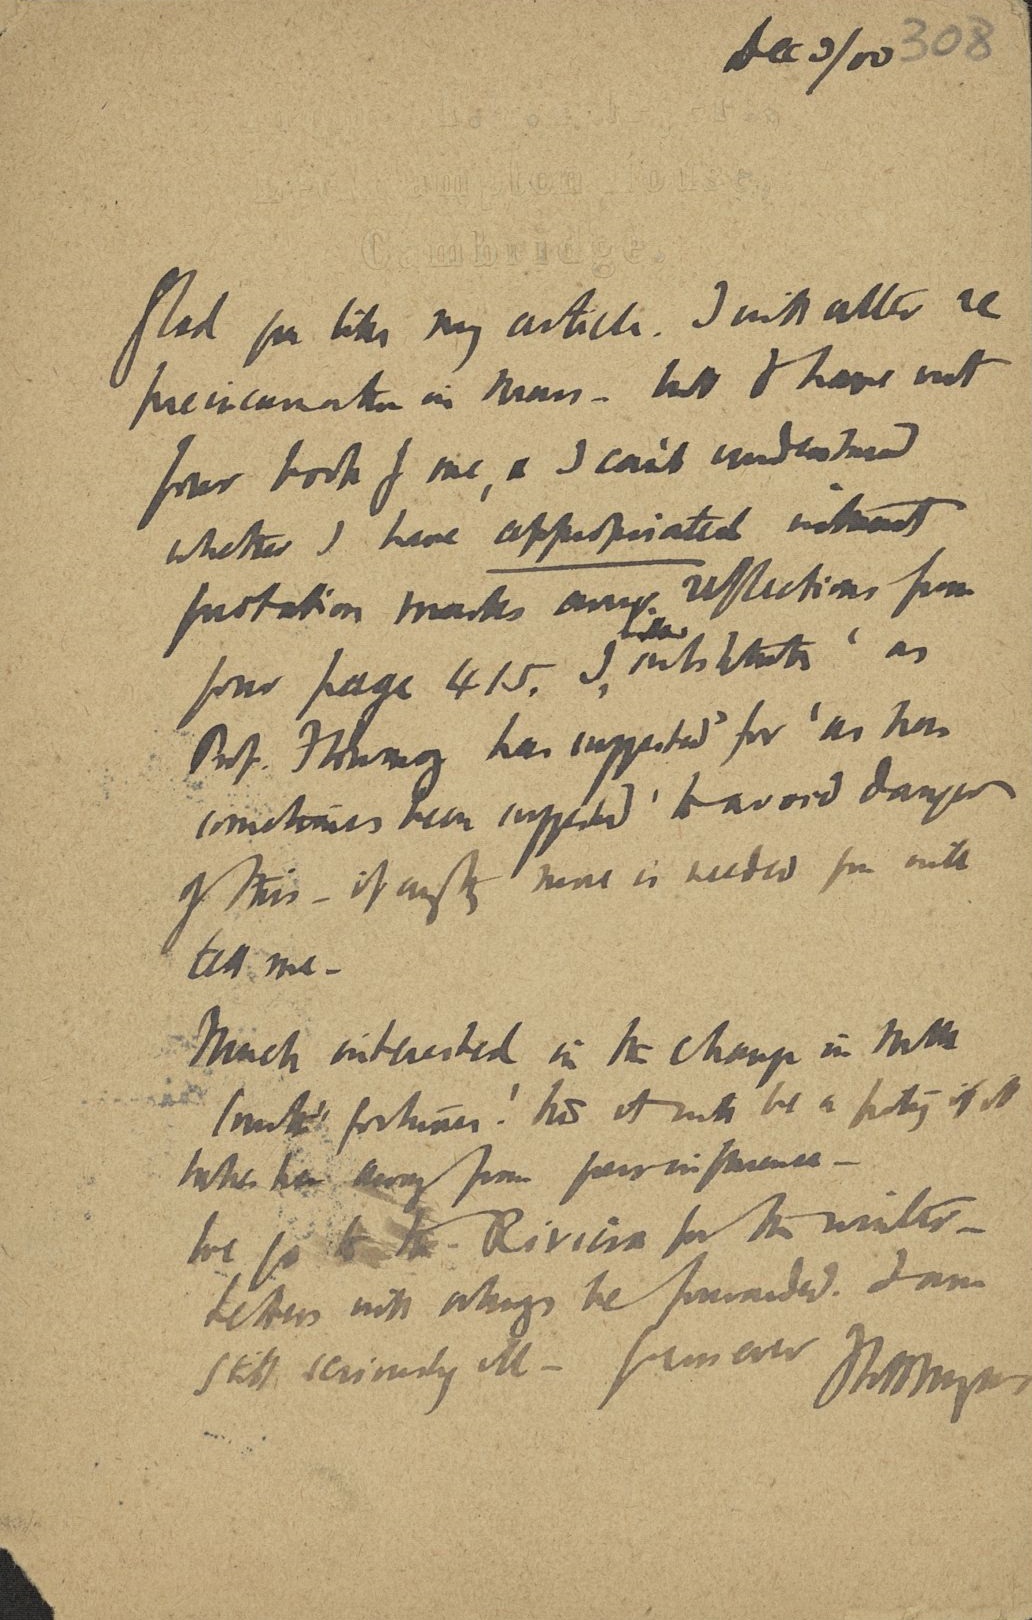 Dec 3/00 308
Leckhampton House,
Cambridge.
Glad you like my article. I will alter re
preincarnation in Mars – but I have not
your book by me, & I can't understand
whether I have appropriated without
quotation marks any reflections from
your page 415. I substitute ' as
Prof. Flournoy has suggested' for 'as has
sometimes been suggested' to avoid danger
of this – if anythg more is needed you will
tell me –
Much interested in the change in Mlle
Smith's fortunes! but it will be a pity if it
takes her away from your influence –
We go to the Riviera for the winter –
Letters will always be forwarded. I am
still seriously ill – Yours ever FWHMyers